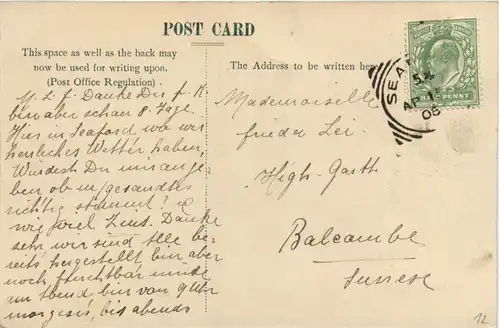 POST CARD
This space as well as the back may
now be used for writing upon.
(Post Office Regulation)
M. L. F. Danke Dir f. K.
bin aber schon 8 Tage
Hier in Seaford wo wir
herrliches Wetter haben,
Würdest Du mir ange-
ben ob m/gesandtes
richtig stimmt? u
wie fiel Zins. Danke
sehr wir sind alle be-
reits hergestellt bin aber
noch furchtbar müde
am Abend bin von 9 Uhr
morgens, bis abends
The Address to be written here
Mademoiselle
Frieda Lei
High-Garth
Balcombe
Sussex
SEAF
AP 15
08
HALFPENNY
12